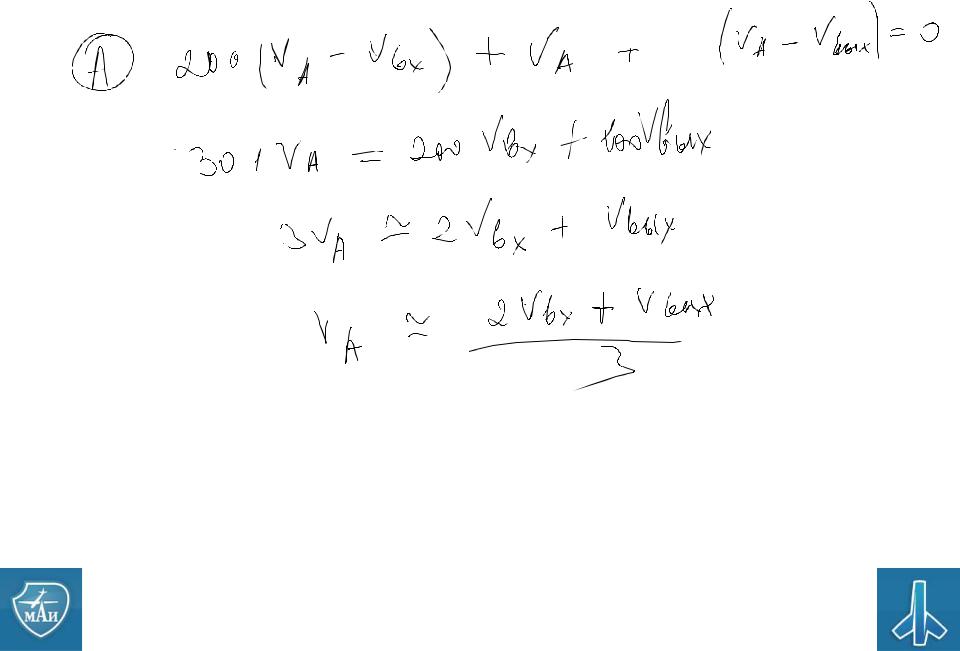 A 200 (V_A - V_вх) + V_A + (V_A - V_вых) = 0
301 V_A = 200 V_вх + 100 V_вых
3V_A ≃ 2V_вх + V_вых
V_A ≃ 2V_вх + V_вых
3
МАИ